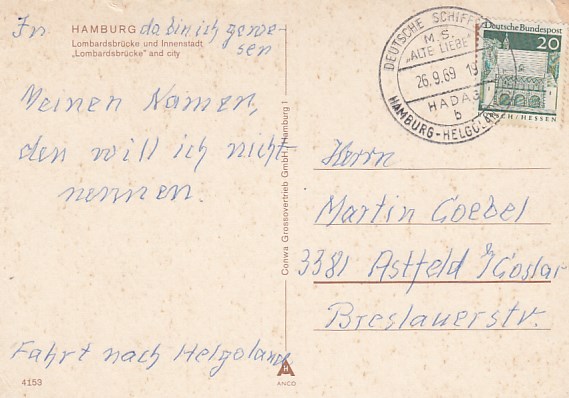 In HAMBURG da bin ich gewe-
sen
Lombardsbrücke und Innenstadt
„Lombardsbrücke" and city
Meinen Namen,
den will ich nicht
nennen.
Fahrt nach Helgoland
4153
Conwa Grossovertrieb GmbH, Hamburg 1
ANCO
DEUTSCHE SCHIFFS
M.S.
„ALTE LIEBE"
26.9.69 19
HADAG
b
HAMBURG-HELGOLAND
Deutsche Bundespost
20
LORSCH/HESSEN
Herrn
Martin Goebel
3381 Astfeld ü/Goslar
Breslauerstr.